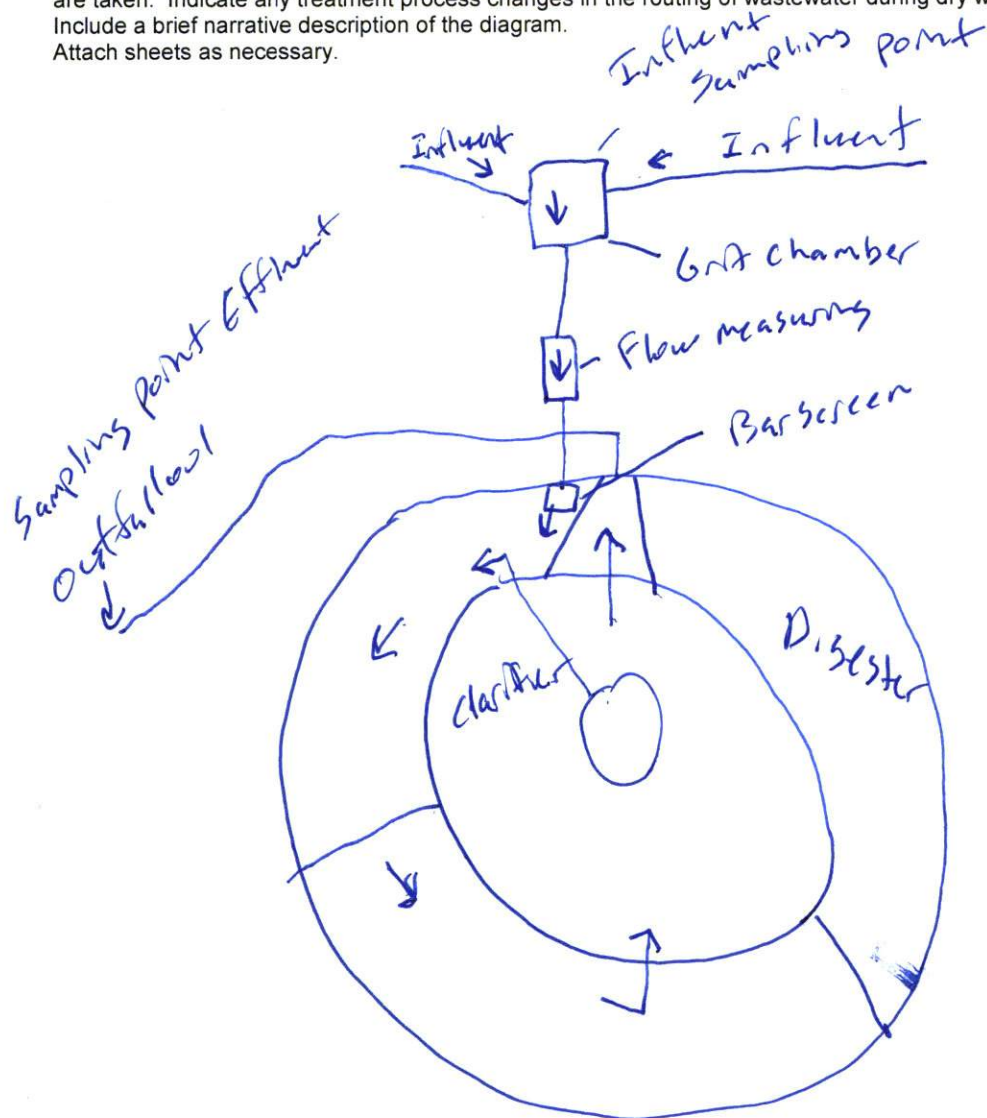 are taken. Indicate any treatment process changes in the routing of wastewater during dry w
Include a brief narrative description of the diagram.
Attach sheets as necessary.
Influent
Sampling point
Influent
Influent
Grit chamber
Flow measuring
Bar screen
Sampling point Effluent
Outfall001
Digester
Clarifier